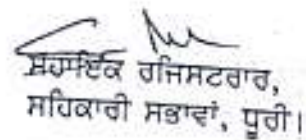 ਸਹਾਇਕ ਰਜਿਸਟਰਾਰ,
ਸਹਿਕਾਰੀ ਸਭਾਵਾਂ, ਧੂਰੀ।